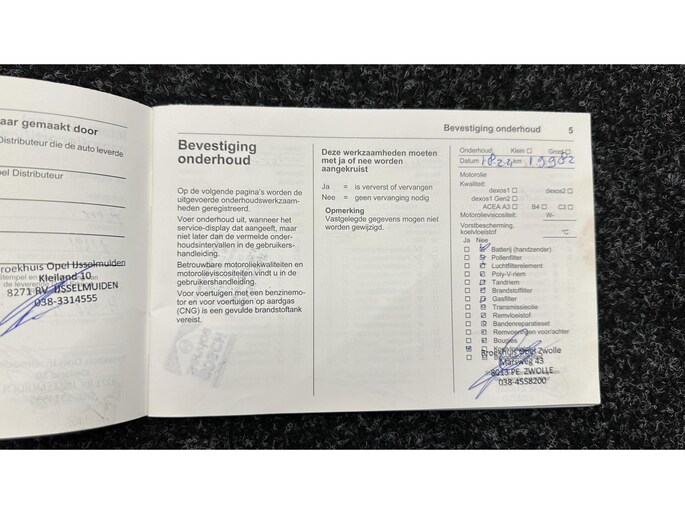 aar gemaakt door
Distributeur die de auto leverde
el Distributeur
roekhuis Opel IJsselmuiden
Kleiland 10
8271 RV IJSSELMUIDEN
038-3314555
Bevestiging onderhoud 5
Bevestiging
onderhoud
Op de volgende pagina's worden de
uitgevoerde onderhoudswerkzaam-
heden geregistreerd.
Voer onderhoud uit, wanneer het
service-display dat aangeeft, maar
niet later dan de vermelde onder-
houdsintervallen in de gebruikers-
handleiding.
Betrouwbare motoroliekwaliteiten en
motorolieviscositeiten vindt u in de
gebruikershandleiding.
Voor voertuigen met een benzinemo-
tor en voor voertuigen op aardgas
(CNG) is een gevulde brandstoftank
vereist.
Deze werkzaamheden moeten
met ja of nee worden
aangekruist
Ja = is ververst of vervangen
Nee = geen vervanging nodig
Opmerking
Vastgelegde gegevens mogen niet
worden gewijzigd.
Onderhoud: Klein Groot
Datum km 19982
Motorolie
Kwaliteit:
dexos1 dexos2
dexos1 Gen2
ACEA A3 B4 C3
Motorolieviscositeit: W-
Voorstbescherming,
koelvloeistof °C
Ja Nee
Batterij (handzender)
Pollenfilter
Luchtfilterelement
Poly-V-riem
Tandriem
Brandstoffilter
Gasfilter
Transmissieolie
Remvloeistof
Bandenreparatieset
Remvoeringen voor/achter
Bougies
Broekhuis Opel Zwolle
Marsweg 43
8013 PE ZWOLLE
038-4558200